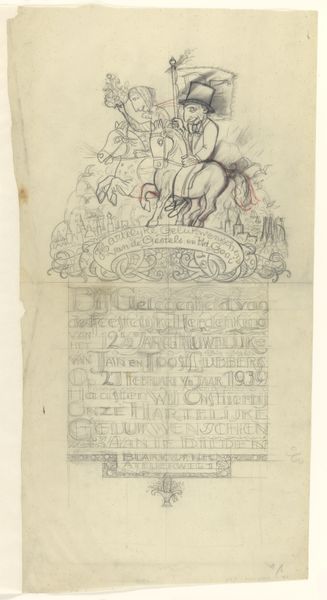 Hartelijke Gelukwenschen
van de Gestels en het Gooi
Bij Gelegenheid van
de Feestelijke Herdenking
VAN HET 12½ JARIG HUWELIJK
VAN JAN EN TOOS LUBBERS
OP 21 FEBRUARI VAN 'T JAAR 1939
Haasten Wij Ons Hierbij
ONZE HARTELIJKE
GELUKWENSCHEN
AAN TE BIEDEN
BLARICUM NH